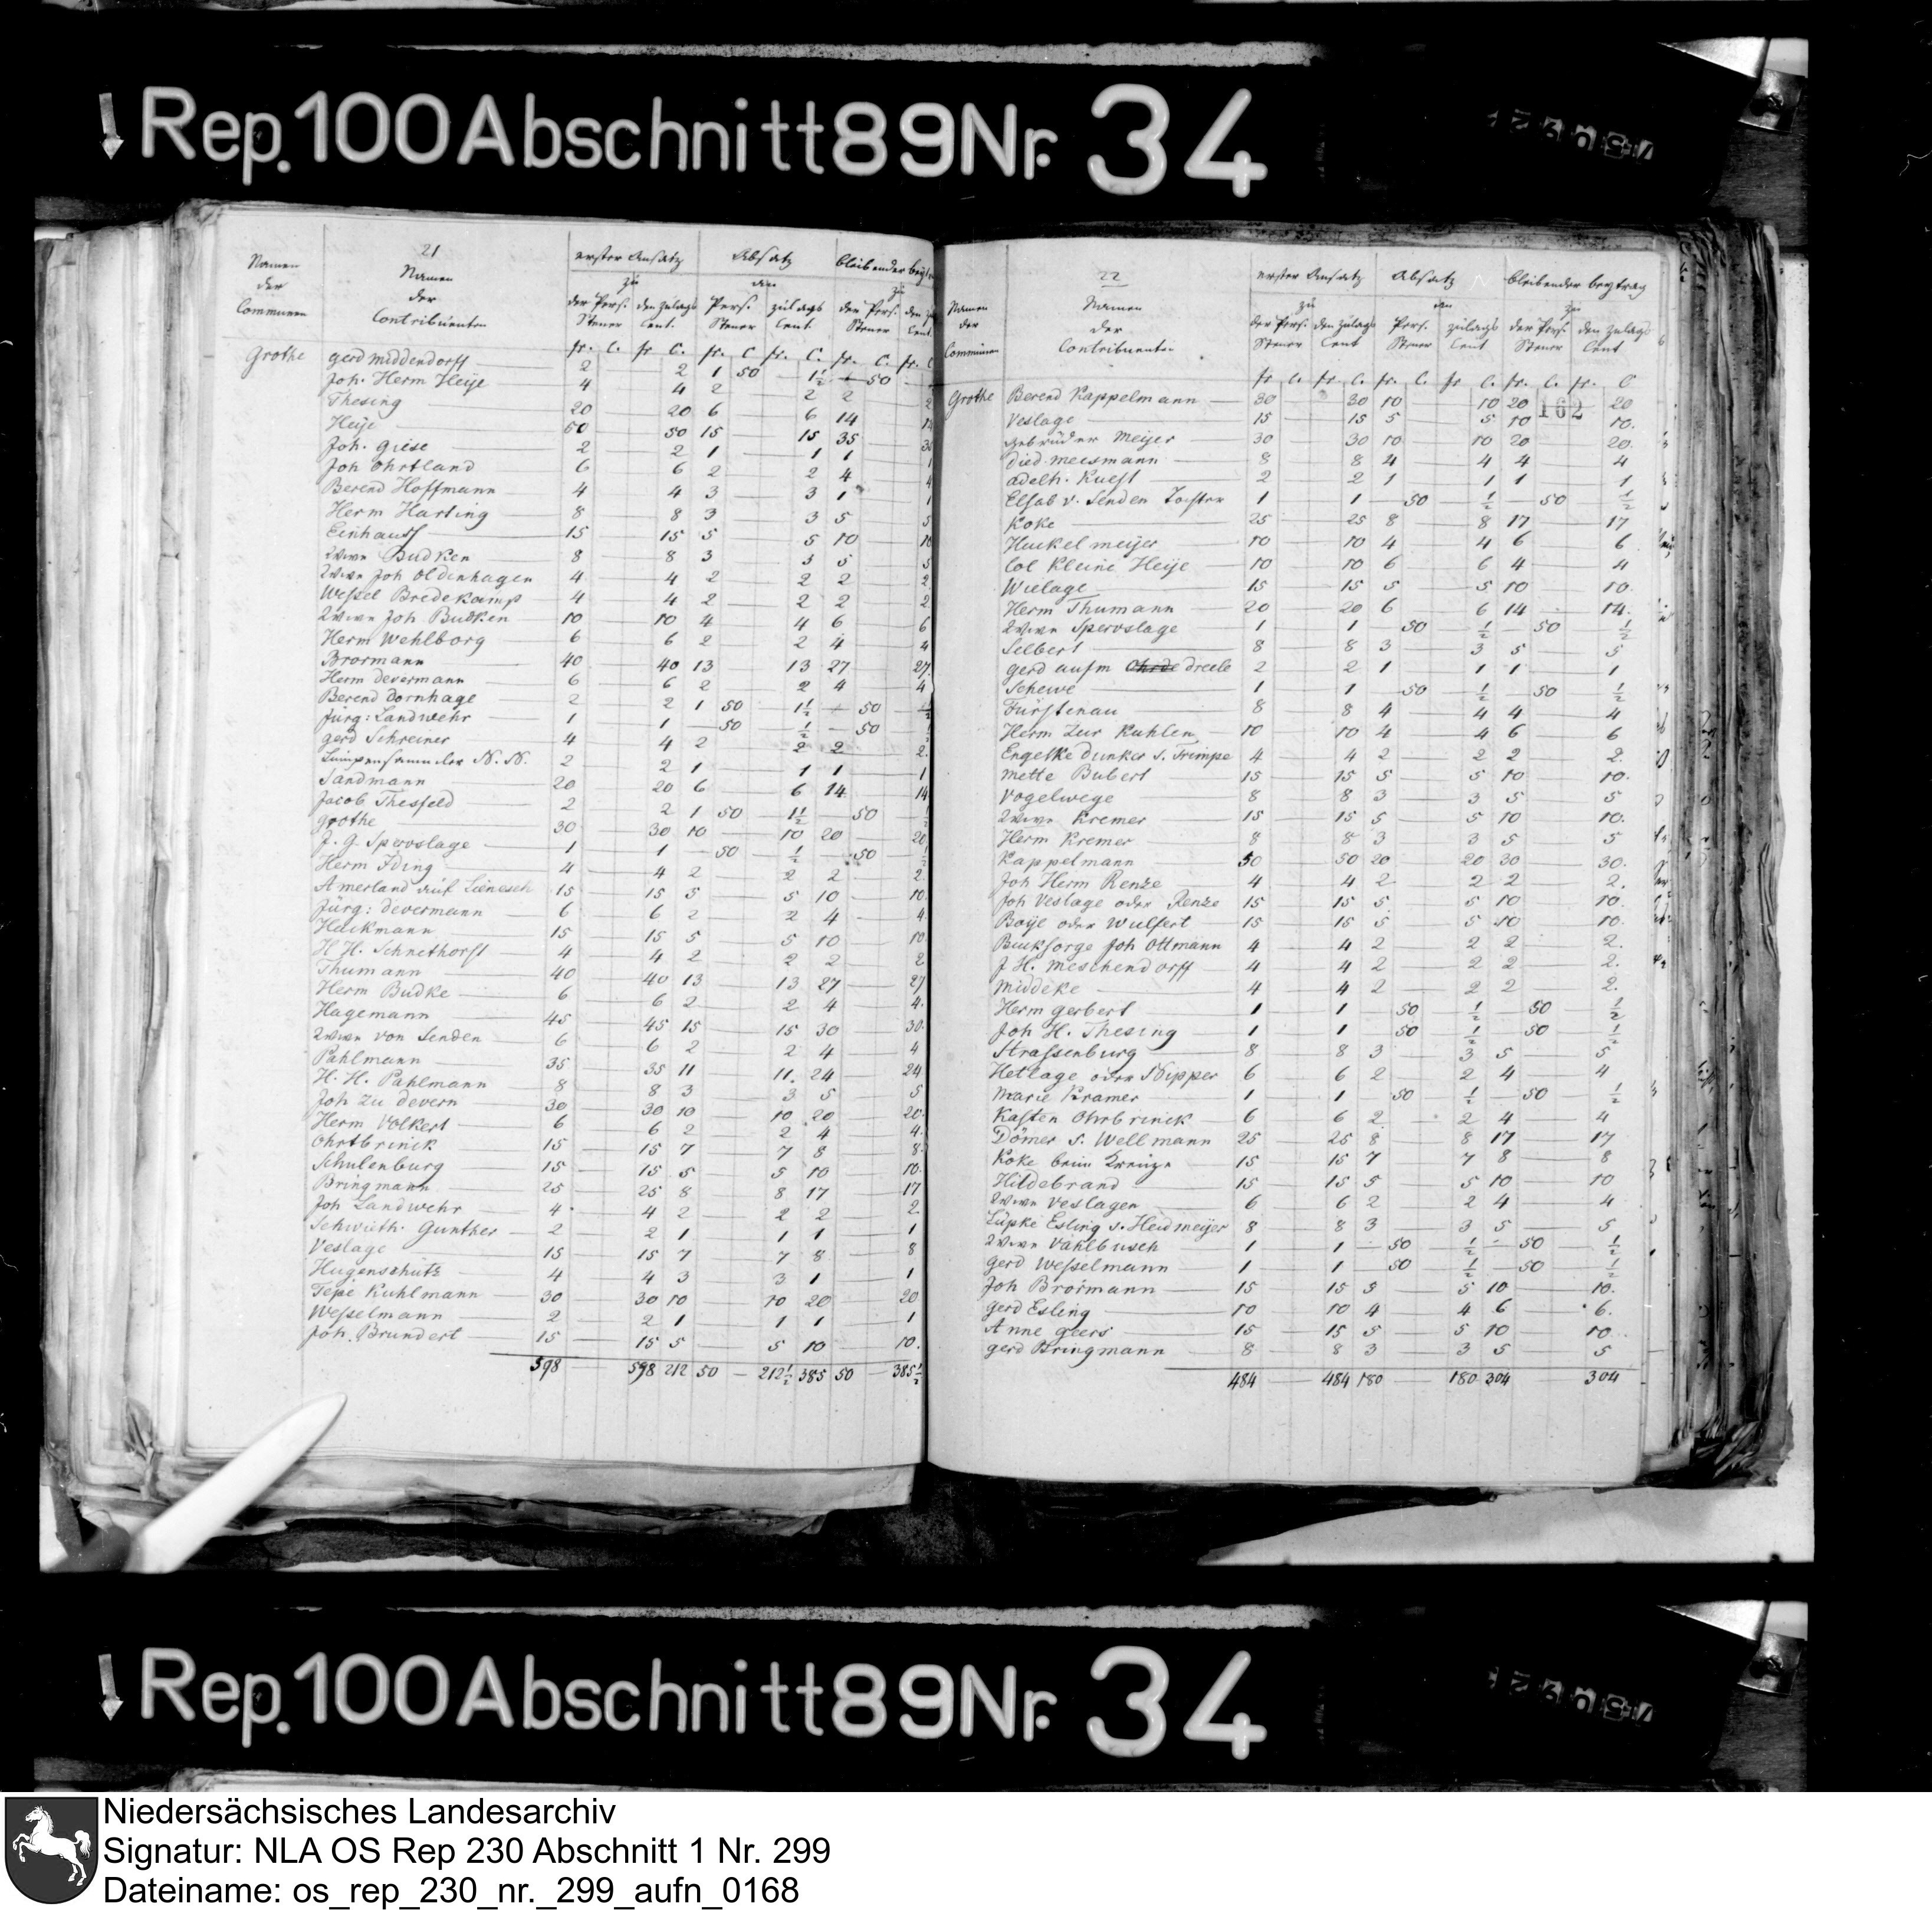 Rep. 100 Abschnitt 89 Nr. 34
21
Namen der Communen
Namen der Contribuenten
erster Ansatz
Absatz
bleibender
zu
an
zu
der Pers. Steuer
den zulags Cent.
Pers. Steuer
zulags Cent.
der Pers. Steuer
fr. C. fr C. fr. C fr. C. fr. C. fr. C
Grothe gerd middendorff 2 2 1 50 1½ 50
Joh. Herm Heije 4 4 2 2 2 2
Thesing 20 20 6 6 14 14
Heije 50 15 15 35
Joh. giese 2 2 1 1 1 1
Joh Ohrtland 6 6 2 2 4 4
Berend Hoffmann 4 4 3 3 1 1
Herm Harting 8 8 3 3 5 5
Einhaus 15 15 5 5 10 10
Wwe Budken 8 8 3 3 5 5
Wwe Joh Oldenhagen 4 4 2 2 2 2
Wessel Bredekamp 4 4 2 2 2 2
Wwe Joh Budken 10 10 4 4 6 6
Herm Wehlborg 6 6 2 2 4 4
Brormann 40 40 13 13 27 27
Herm devermann 6 6 2 2 4 4
Berend Dornhage 2 2 1 50 1½ 50 ½
Jürg: Landwehr 1 1 50 ½ 50
gerd Schreiner 4 4 2 2 2 2.
Lumpensammler N. N. 2 2 1 1 1 1
Sandmann 20 20 6 6 14 14
Jacob Thesfeld 2 2 1 50 1½ 50
grothe 30 30 10 10 20 20
J. G. Spervslage 1 1 50 ½ 50
Herm Iding 4 4 2 2 2 2
Amerland auf Lienesch 15 15 5 5 10 10
Jürg: devermann 6 6 2 2 4 4
Heickmann 15 15 5 5 10 10
H H. Schnethorst 4 4 2 2 2 2
Thumann 40 40 13 13 27 27
Herm Budke 6 6 2 2 4 4.
Hagemann 45 45 15 15 30 30
Wwe von Senden 6 6 2 2 4 4
Pahlmann 35 35 11 11. 24 24
H. H. Pahlmann 8 8 3 3 5 5
Joh zu devern 30 30 10 10 20 20
Herm Volkert 6 6 2 2 4 4.
Ohrtbrinck 15 15 7 7 8 8
Schulenburg 15 15 5 5 10 10
Bringmann 25 25 8 8 17 17
Joh Landwehr 4 4 2 2 2 2
Schwieth. Gunther 2 2 1 1 1 1
Veslage 15 15 7 7 8 8
Hugenschütz 4 4 3 3 1 1
Tepe Kuhlmann 30 30 10 10 20 20
Wesselmann 2 2 1 1 1 1
Joh. Brundert 15 15 5 5 10 10.
598 598 212 50 212½ 385 50 385½
22
Namen der Communen
Namen der Contribuenten
erster Ansatz
Absatz
bleibender beytrag
zu
an
zu
der Pers. Steuer
den zulags Cent
Pers. Steuer
zulags Cent
der Pers. Steuer
den zulags Cent
fr C. fr. C. fr. C. fr C. fr. C. fr. C
162
Grothe Berend Kappelmann 30 30 10 10 20 20
Veslage 15 15 5 5 10 10.
gebrüder Meijer 30 30 10 10 20 20.
died. meesmann 8 8 4 4 4 4
adelh. Kuest 2 2 1 1 1 1
Elsab v. Senden Tochter 1 1 50 ½ 50 ½
Koke 25 25 8 8 17 17
Huckelmeijer 10 10 4 4 6 6
Col Kleine Heije 10 10 6 6 4 4
Wielage 15 15 5 5 10 10
Herm Thumann 20 20 6 6 14 14.
Wwe Spervslage 1 1 50 ½ 50 ½
Selbert 8 8 3 3 5 5
gerd aufm dreele 2 2 1 1 1 1
Schewe 1 1 50 ½ 50 ½
Fürstenau 8 8 4 4 4 4
Herm Zur Kuhlen 10 10 4 4 6 6
Engelke dunker s. Trimpe 4 4 2 2 2 2.
mette Bubert 15 15 5 5 10 10.
Vogelwege 8 8 3 3 5 5
Wwe Kremer 15 15 5 5 10 10.
Herm Kremer 8 8 3 3 5 5
Kappelmann 50 50 20 20 30 30.
Joh Herm Renze 4 4 2 2 2 2.
Joh Veslage oder Renze 15 15 5 5 10 10
Boije oder Wulfert 15 15 5 5 10 10
Bucksorge Joh Ottmann 4 4 2 2 2 2.
J H. Meschendorff 4 4 2 2 2 2.
Middeke 4 4 2 2 2 2.
Herm gerbert 1 1 50 ½ 50 ½
Joh H. Thesing 1 1 50 ½ 50 ½
Strassenburg 8 8 3 3 5 5
Hetlage oder Nipper 6 6 2 2 4 4
Marie Kramer 1 1 50 ½ 50 ½
Kasten Ohrbrinck 6 6 2 2 4 4
Dömer s. Wellmann 25 25 8 8 17 17
Koke beim Kreuze 15 15 7 7 8 8
Hildebrand 15 15 5 5 10 10
Wwe Veslagen 6 6 2 2 4 4
Lüpke Esling s. Heidmeijer 8 8 3 3 5 5
Wwe Vahlbusch 1 1 50 ½ 50 ½
gerd Wesselmann 1 1 50 ½ 50 ½
Joh Brormann 15 15 5 10 10.
gerd Esling 10 10 4 4 6 6.
Anne geers 15 15 5 5 10 10
gerd Bringmann 8 8 3 3 5 5
484 484 180 180 304 304
Rep. 100 Abschnitt 89 Nr. 34
Niedersächsisches Landesarchiv
Signatur: NLA OS Rep 230 Abschnitt 1 Nr. 299
Dateiname: os_rep_230_nr._299_aufn_0168